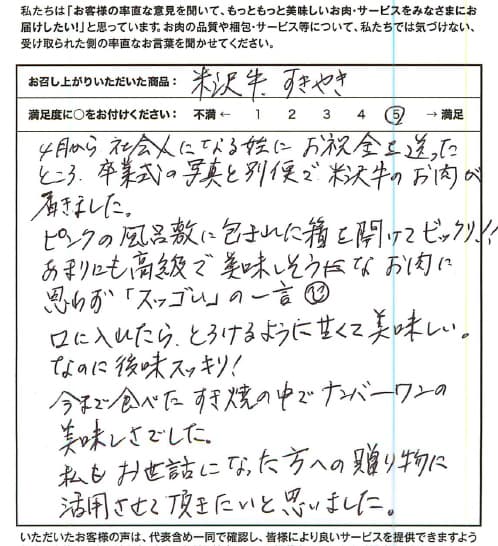 私たちは「お客様の率直な意見を聞いて、もっともっと美味しいお肉・サービスをみなさまにお
届けしたい!」と思っています。お肉の品質や梱包・サービス等について、私たちでは気づけない、
受け取られた側の率直なお言葉を聞かせてください。
お召し上がりいただいた商品: 米沢牛 すきやき
満足度に○をお付けください: 不満 ← 1 2 3 4 ⑤ → 満足
4月から 社会人になる姪に お祝金を送った
ところ、卒業式の写真と別便で 米沢牛のお肉が
届きました。
ピンクの風呂敷に包まれた箱を開けてビックリ!!
あまりにも高級で美味しそうな お肉に
思わず「スッゴい」の一言
口に入れたら、とろけるように甘くて美味しい。
なのに後味スッキリ!
今まで食べた すき焼の中でナンバーワンの
美味しさでした。
私も お世話になった方への贈り物に
活用させて頂きたいと思いました。
いただいたお客様の声は、代表含め一同で確認し、皆様により良いサービスを提供できますよう